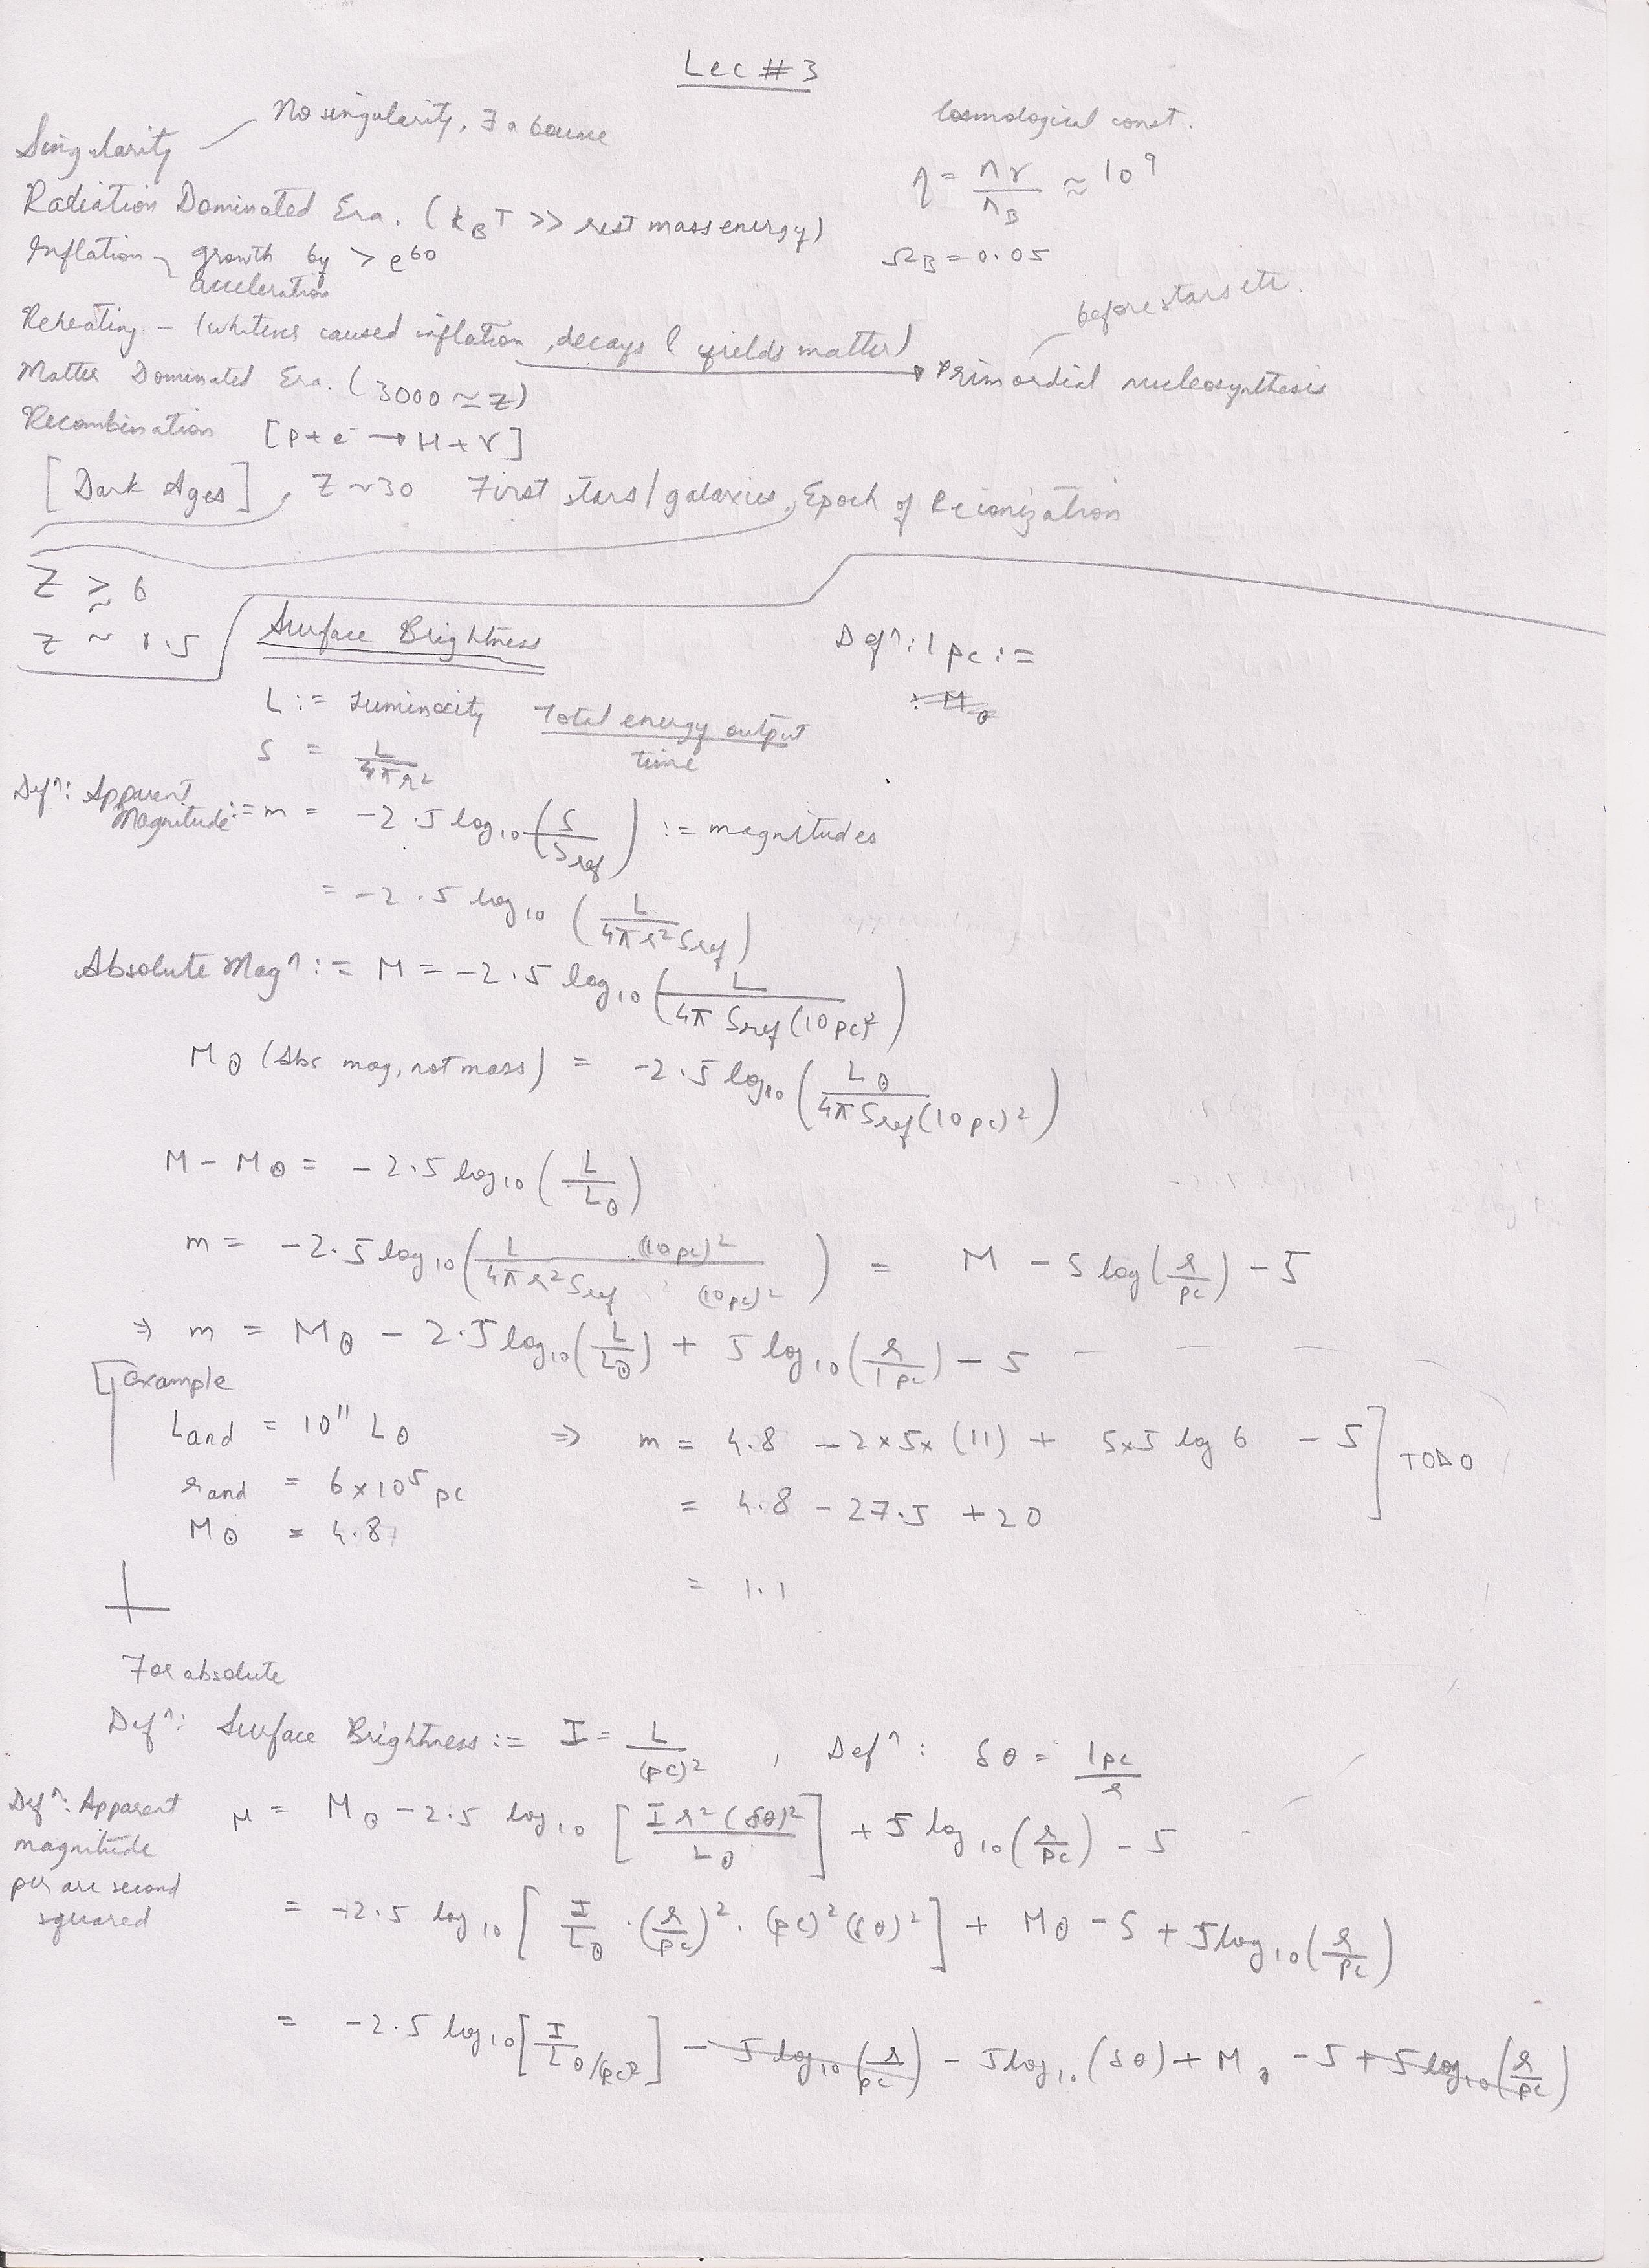 Lec #3
No singularity, ∃ a bounce
Singularity
Cosmological const.
η = nγ/n_B ≈ 10^9
Radiation Dominated Era. (k_B T >> rest mass energy)
Ω_B = 0.05
Inflation ~ growth by > e^60
acceleration
before stars etc.
Reheating - (whatever caused inflation, decays & yields matter)
Primordial nucleosynthesis
Matter Dominated Era. (3000 ≃ z)
Recombination [p + e⁻ → H + γ]
[Dark Ages], Z ~ 30 First stars/galaxies, Epoch of Reionization
Z ≳ 6
Z ~ 1.5
Surface Brightness
Defⁿ: 1 pc :=
L := Luminocity Total energy output/time
S = L/4πr²
Defⁿ: Apparent Magnitude := m = -2.5 log₁₀ (S/S_ref) := magnitudes
= -2.5 log₁₀ (L/4πr² S_ref)
Absolute Magⁿ := M = -2.5 log₁₀ (L/4π S_ref (10pc)²)
M⊙ (Abs mag, not mass) = -2.5 log₁₀ (L⊙/4π S_ref (10pc)²)
M - M⊙ = -2.5 log₁₀ (L/L⊙)
m = -2.5 log₁₀ (L/4πr² S_ref (10pc)²/(10pc)²) = M - 5 log (r/pc) - 5
⇒ m = M⊙ - 2.5 log₁₀ (L/L⊙) + 5 log₁₀ (r/1pc) - 5
Example
L_and = 10^11 L⊙ ⇒ m = 4.8 - 2×5×(11) + 5×5 log 6 - 5 ] TODO
r_and = 6×10^5 pc
= 4.8 - 27.5 + 20
M⊙ = 4.87
= 1.1
For absolute
Defⁿ: Surface Brightness := I = L/(pc)², Defⁿ: δθ = 1pc/r
Defⁿ: Apparent magnitude per arc second squared
μ = M⊙ - 2.5 log₁₀ [I r² (δθ)²/L⊙] + 5 log₁₀ (r/pc) - 5
= -2.5 log₁₀ [I/L⊙ · (r/pc)² · (pc)² (δθ)²] + M⊙ - 5 + 5 log₁₀ (r/pc)
= -2.5 log₁₀ [I/L⊙/pc²] - 5 log₁₀ (r/pc) - 5 log₁₀ (δθ) + M⊙ - 5 + 5 log₁₀ (r/pc)